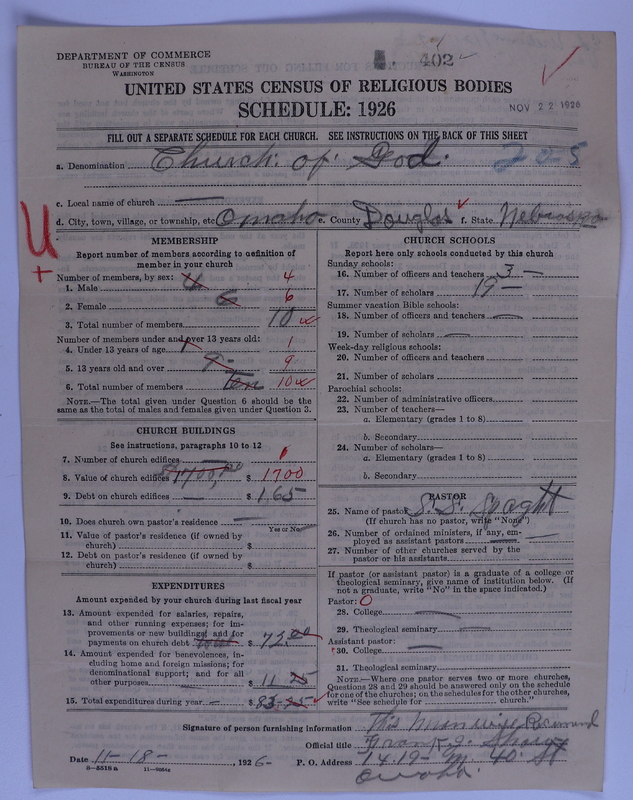 DEPARTMENT OF COMMERCE
BUREAU OF THE CENSUS
WASHINGTON
402
UNITED STATES CENSUS OF RELIGIOUS BODIES
SCHEDULE: 1926
NOV 22 1926
FILL OUT A SEPARATE SCHEDULE FOR EACH CHURCH. SEE INSTRUCTIONS ON THE BACK OF THIS SHEET
a. Denomination Church of God. 20-5
c. Local name of church
d. City, town, village, or township, etc Omaha e. County Douglas f. State Nebraska
U
MEMBERSHIP
Report number of members according to definition of
member in your church
Number of members, by sex:
1. Male 4 4
2. Female 6 6
3. Total number of members 10
Number of members under and over 13 years old:
4. Under 13 years of age 1 1
5. 13 years old and over 9 9
6. Total number of members Ten 10
NOTE.—The total given under Question 6 should be
same as the total of males and females given under Question 3.
CHURCH BUILDINGS
See instructions, paragraphs 10 to 12
7. Number of church edifices 1
8. Value of church edifices $ 1700
9. Debt on church edifices $ 165
10. Does church own pastor's residence
Yes or No
11. Value of pastor's residence (if owned by
church) $
12. Debt on pastor's residence (if owned by
church) $
EXPENDITURES
Amount expended by your church during last fiscal year
13. Amount expended for salaries, repairs,
and other running expenses; for im-
provements or new buildings, and for
payments on church debt $ 72.00
14. Amount expended for benevolences, in-
cluding home and foreign missions; for
denominational support; and for all
other purposes $ 11 25
15. Total expenditures during year $ 83-25
CHURCH SCHOOLS
Report here only schools conducted by this church
Sunday schools:
16. Number of officers and teachers 3
17. Number of scholars 19
Summer vacation Bible schools:
18. Number of officers and teachers
19. Number of scholars
Week-day religious schools:
20. Number of officers and teachers
21. Number of scholars
Parochial schools:
22. Number of administrative officers
23. Number of teachers—
a. Elementary (grades 1 to 8)
b. Secondary
24. Number of scholars—
a. Elementary (grades 1 to 8)
b. Secondary
PASTOR
25. Name of pastor S. S. Spaght
(If church has no pastor, write "None")
26. Number of ordained ministers, if any, em-
ployed as assistant pastors
27. Number of other churches served by the
pastor or his assistants
If pastor (or assistant pastor) is a graduate of a college or
theological seminary, give name of institution below. (If
not a graduate, write "No" in the space indicated.)
Pastor: 0
28. College
29. Theological seminary
Assistant pastor:
30. College
31. Theological seminary
NOTE.—Where one pastor serves two or more churches,
Questions 28 and 29 should be answered only on the schedule
for one of the churches; on the schedules for the other churches,
write "See schedule for church."
Signature of person furnishing information
Official title Frank J.
Date 11-18-, 1926- P. O. Address 1419- M. 40. St
8-5518a 11-9064a Omaha.